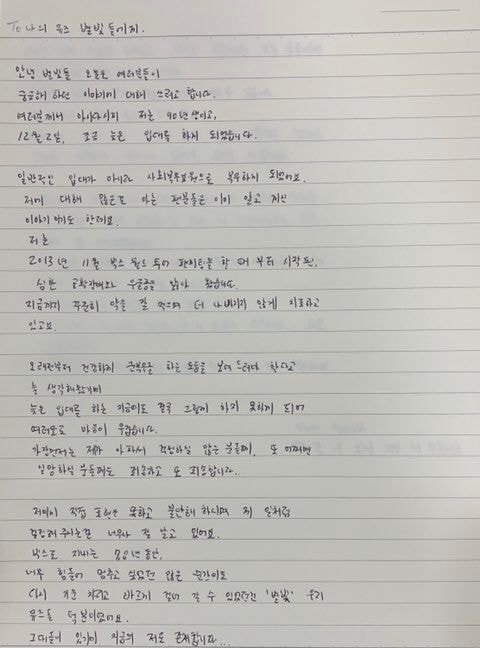 To 나의 뮤즈 별빛들에게.
안녕 별빛들 오늘은 여러분들이
궁금해 하던 이야기에 대해 쓰려고 합니다.
여러분께서 아시다시피 저는 90년생이고,
12월 2일, 조금 늦은 입대를 하게 되었습니다.
일반적인 입대가 아니라 사회복무요원으로 복무하게 되었어요.
저에 대해 많은걸 아는 팬분들은 이미 알고 계신
이야기 이기도 한데요.
저는
2013년 11월 빅스 월드 투어 팬미팅을 할 때 부터 시작된,
심한 공황장애와 우울증을 앓아 왔습니다.
지금까지 꾸준히 약을 잘 먹으며 더 나빠지지 않게 치료하고
있고요.
오래전부터 건강하게 군복무를 하는 모습을 보여 드려야 한다고
늘 생각해왔기에
늦은 입대를 하는 지금에도 결국 그렇게 하지 못하게 되어
여러모로 마음이 무겁습니다.
가장먼저는 제가 아파서 걱정하실 많은 분들께, 또 어쩌면
실망하실 분들께도 죄송하고 또 죄송합니다...
저에게 직접 표현은 못하고 불안해 하시며 제 일처럼
걱정해 주시는걸 너무나 잘 알고 있어요.
빅스로 지내는 동안,
너무 힘들어 멈추고 싶었던 많은 순간에도
다시 기운 차리고 바르게 걸어 갈 수 있었던건 '별빛' 우리
뮤즈들 덕분이었어요.
그대들이 있기에 지금의 저도 존재합니다...